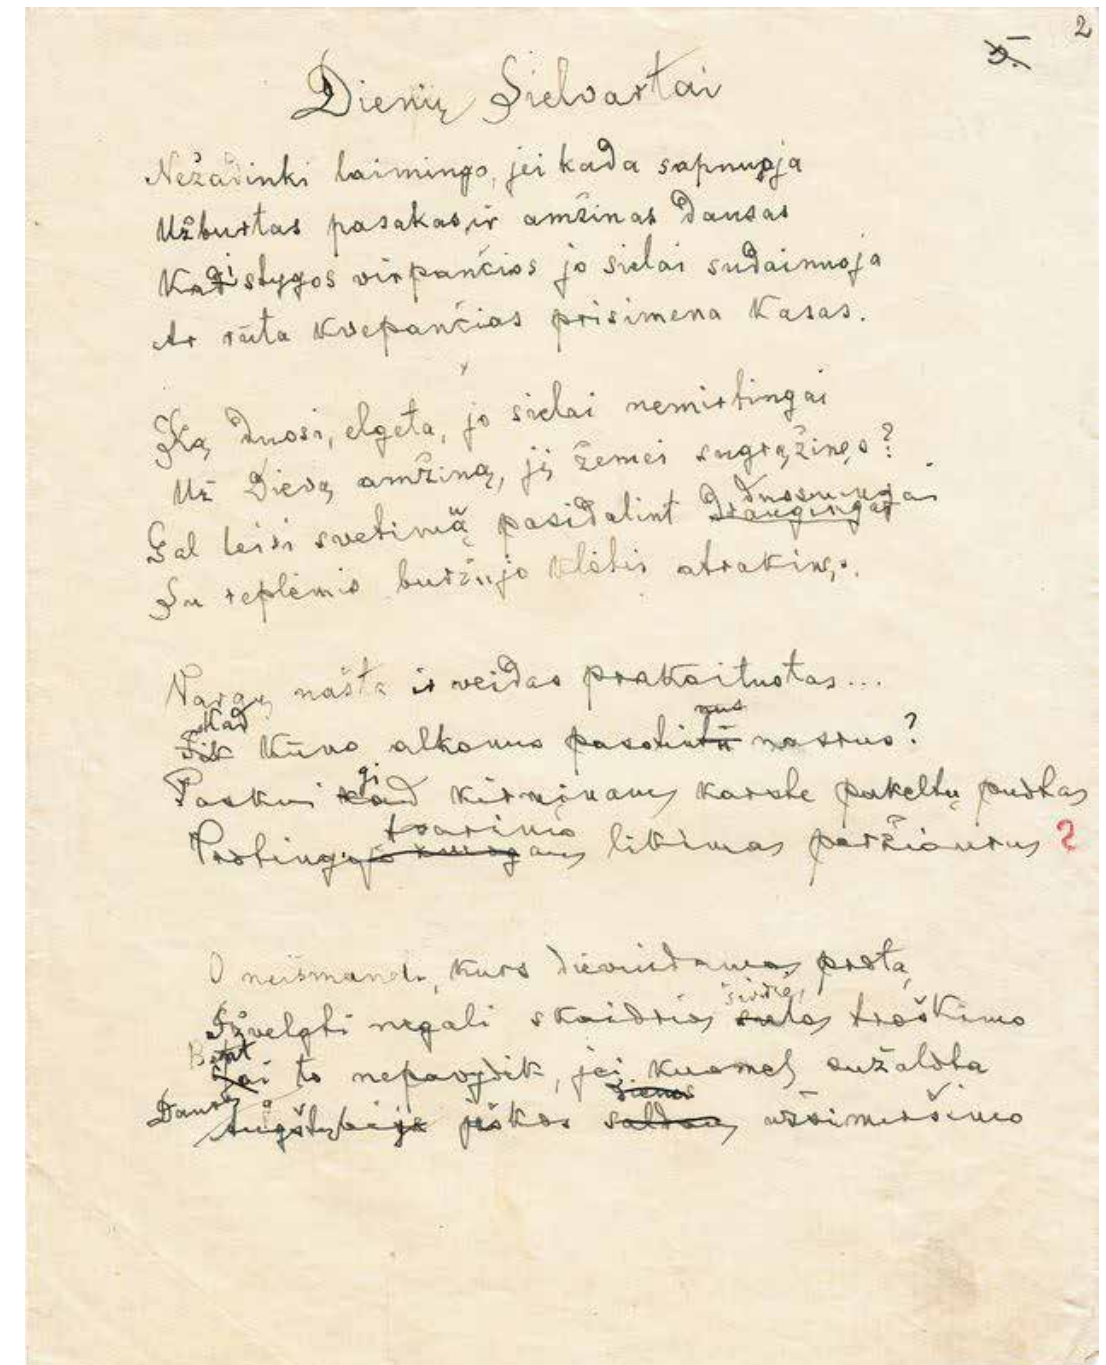 2
5.
Dienų Sielvartai
Nežadinki laimingo, jei kada sapnuoja
Užburtas pasakas ir amžinas dausas
Kadgi stygos virpančios jo sielai sudainuoja
Ar rūta kvepančias prisimena kasas.
Ką duosi, elgeta, jo sielai nemirtingai
Už Dievą amžiną, jį žemei sugrąžinęs?
duosningai
Gal leisi svetimu pasidalint draugingai
Su replėmis buržujo klėtis atrakinęs.
Vargų našta ir veidas prakaituotas...
Kad nus
Tik kūno alkanus pasotintū nasrus?
gi
Paskui kad kirmėnams karste pakeltų puotas
tvarinio
Protingojo žmogaus likimas peržiaurus ?
O neišmanėli, kurs dievindamas protą,
širdies
Išvelgti negali skaidrios sielos troškimo
Bent
Tai to nepavydėk, jei kuomet sužalota
Dausoj dienos
Augštybėje ieškos saldaus užsimiršimo